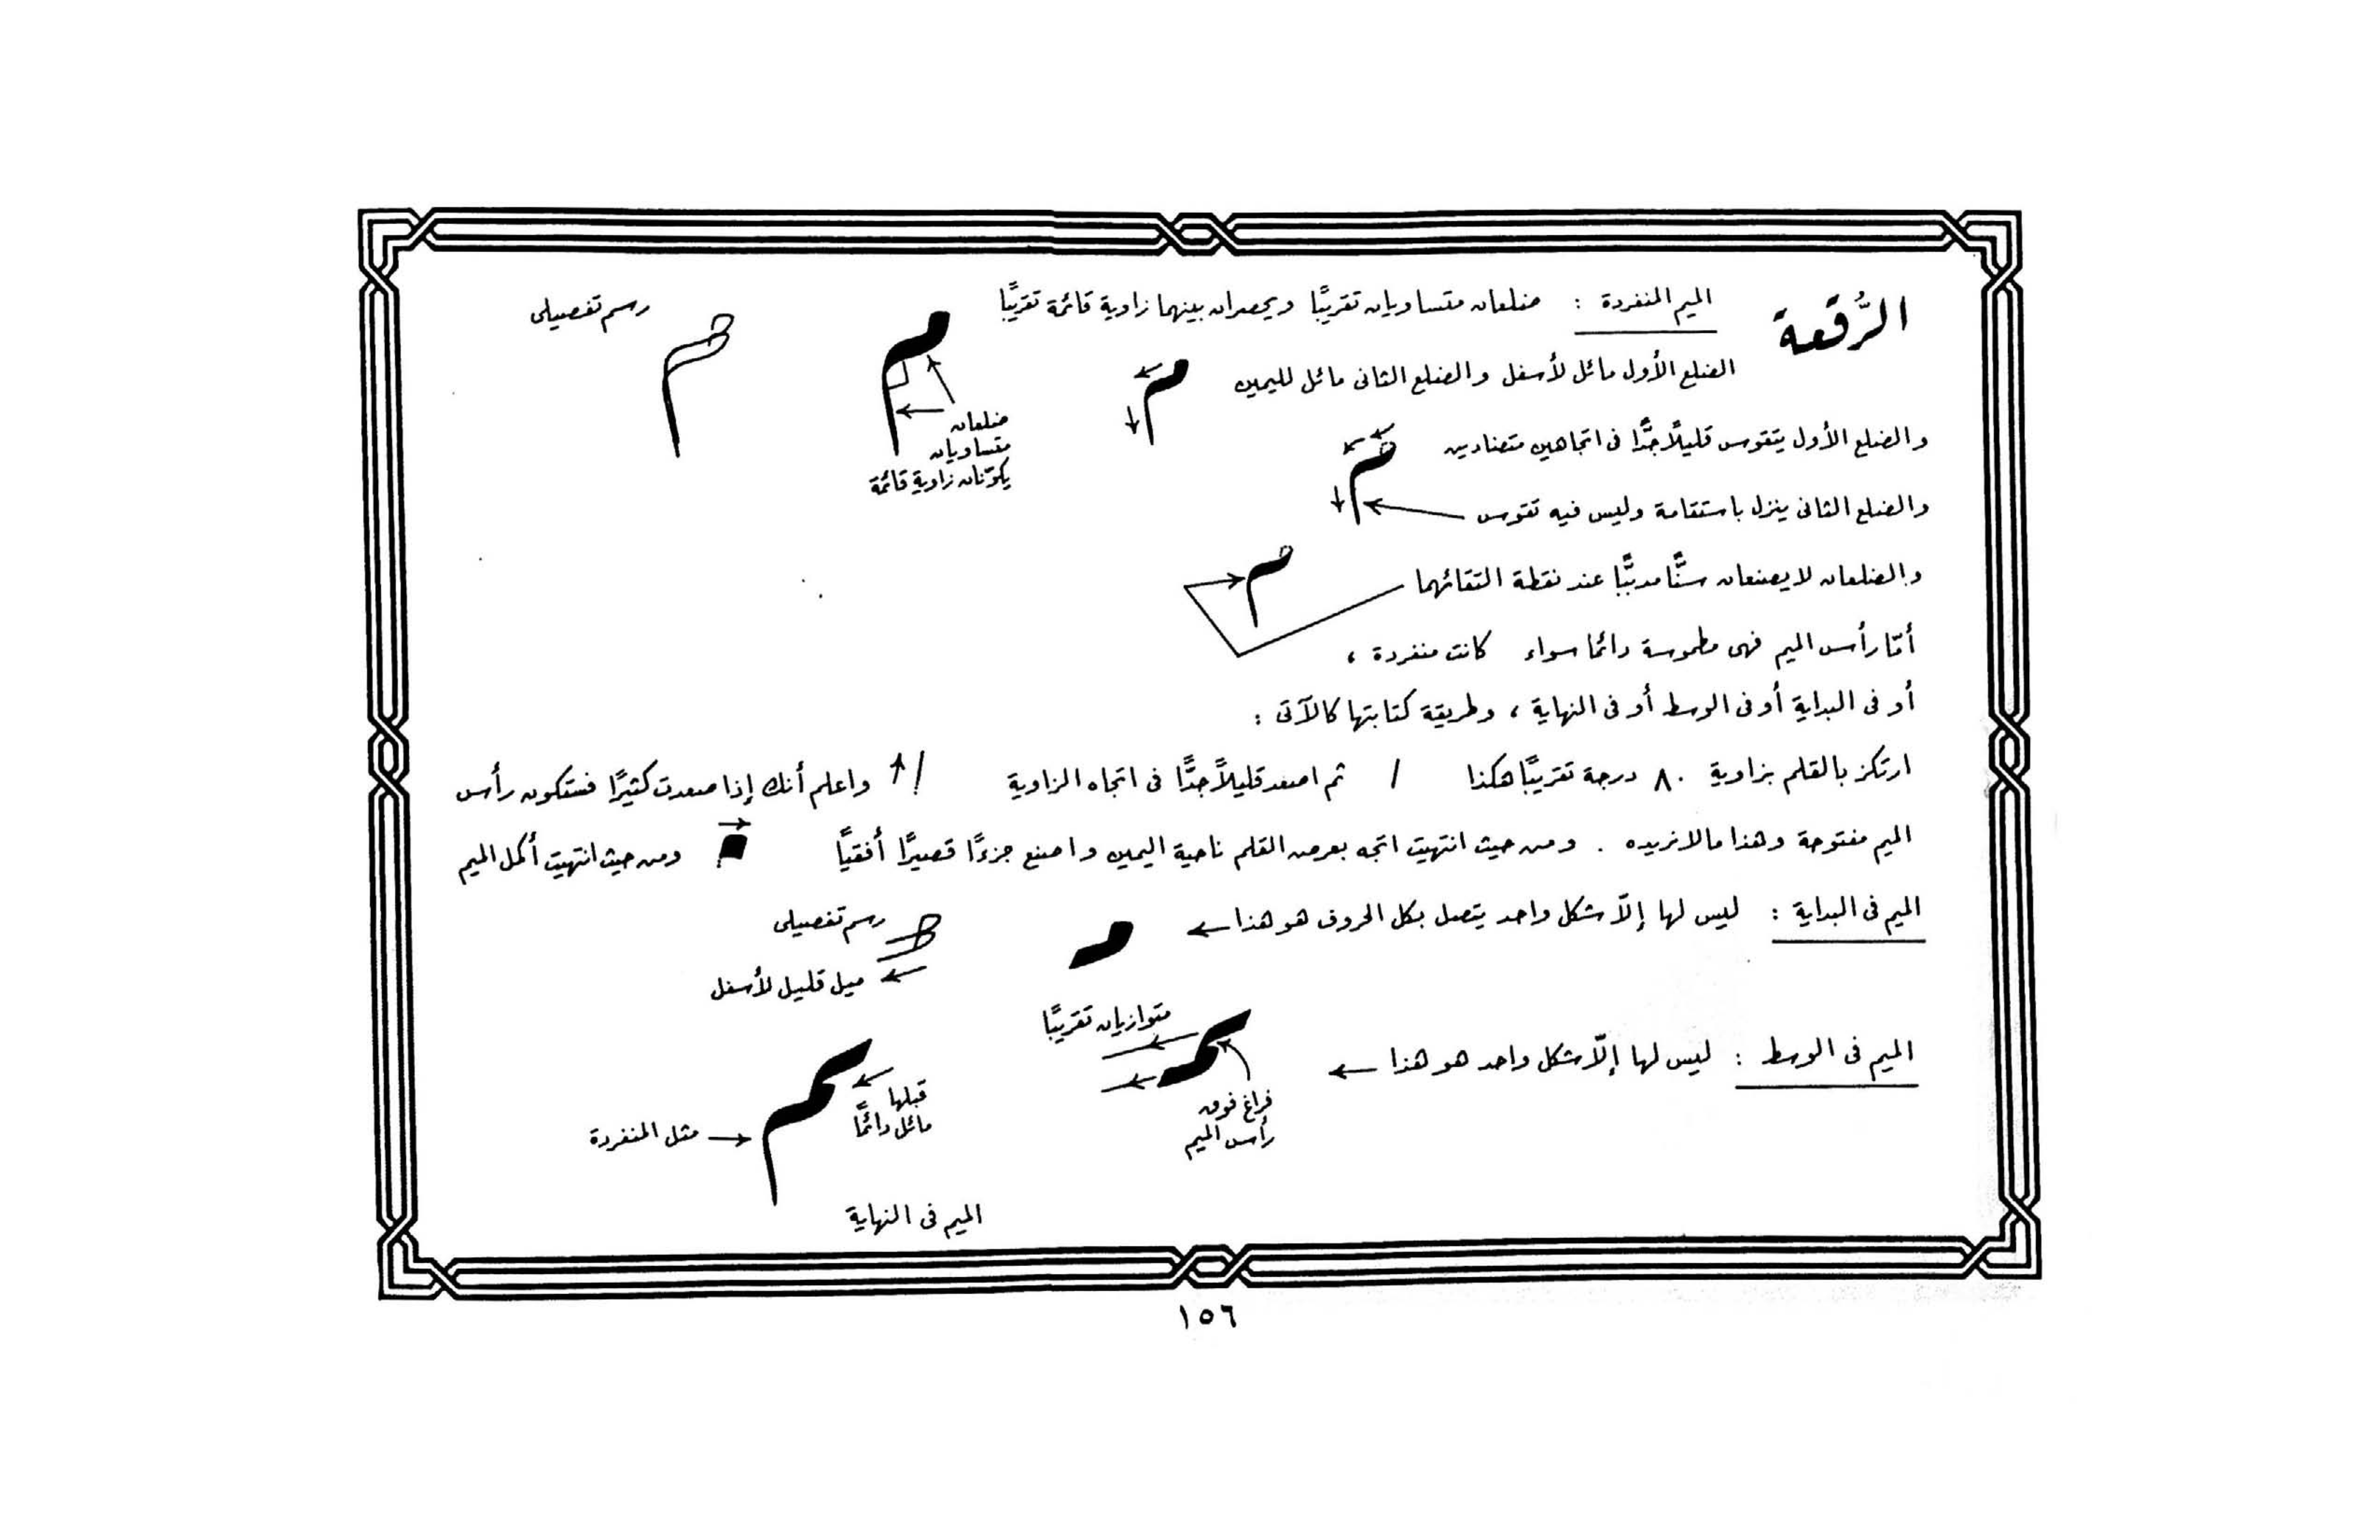 الرُّقعة
الميم المنفردة : ضلعان متساويان تقريبًا ويحصران بينهما زاوية قائمة تقريبًا
رسم تفصيلى
الضلع الأول مائل لأسفل والضلع الثانى مائل لليمين
ضلعان
متساويان
يكوّنان زاوية قائمة
والضلع الأول يتقوس قليلًا جدًّا فى اتجاهين متضادين
والضلع الثانى ينزل باستقامة وليس فيه تقوس
والضلعان لا يصنعان سنًّا مدببًا عند نقطة التقائهما
أمّا رأس الميم فهى مطموسة دائما سواء كانت منفردة ،
أو فى البداية أو فى الوسط أو فى النهاية ، وطريقة كتابتها كالآتى :
ارتكز بالقلم بزاوية ٨٠ درجة تقريبًا هكذا / ثم اصعد قليلاً جدًّا فى اتجاه الزاوية / واعلم أنك إذا صعدت كثيرًا فستكون رأس
الميم مفتوحة وهذا مالا نريده . ومن حيث انتهيت اتجه بعرض القلم ناحية اليمين واصنع جزءًا قصيرًا أفقياً ومن حيث انتهيت أكمل الميم
الميم فى البداية : ليس لها إلاّ شكل واحد يتصل بكل الحروف هو هذا
رسم تفصيلى
ميل قليل لأسفل
الميم فى الوسط : ليس لها إلاّ شكل واحد هو هذا
متوازيان تقريبًا
فراغ فوق
رأس الميم
قبلها
مائل دائمًا
مثل المنفردة
الميم فى النهاية
١٥٦